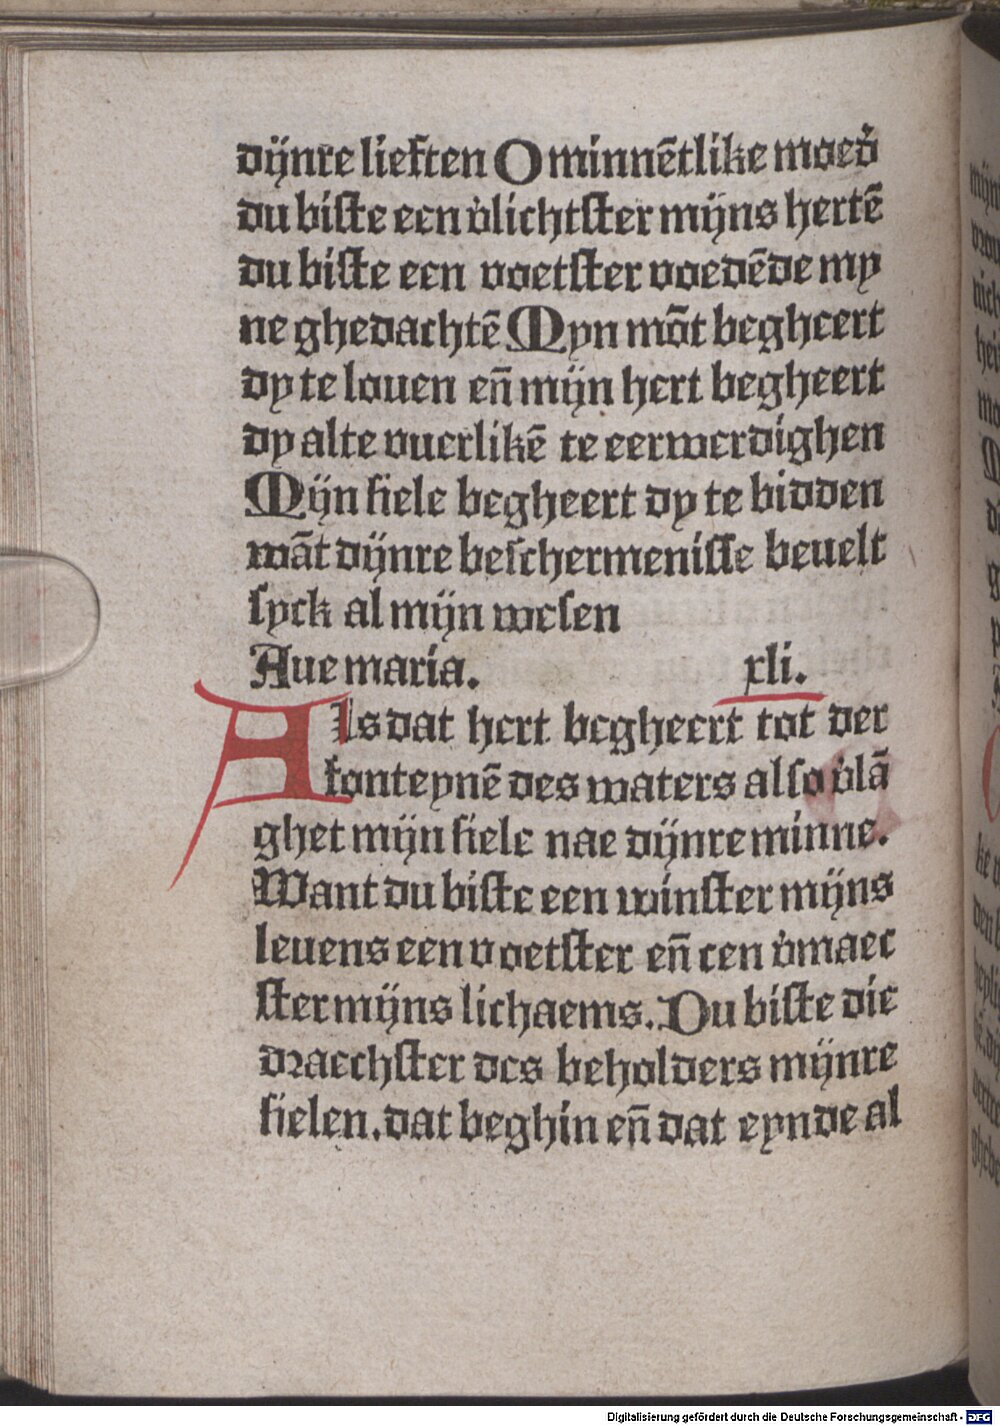 dijnre lieften O minnētlike moed̉
du biste een v̉lichtster mijns hertē
du biste een voetster voedēde my
ne ghedachtē Myn mōt begheert
dy te louen en̄ mijn hert begheert
dy alte vuerlikē te eerwerdighen
Mijn siele begheert dy te bidden
wāt dijnre beschermenisse beuelt
syck al mijn wesen
Aue maria. xli.
Als dat hert begheert tot der
fonteynē des waters also v̉lā
ghet mijn siele nae dijnre minne.
Want du biste een winster mijns
leuens een voetster en̄ een v̉maec
ster mijns lichaems. Du biste die
draechster des beholders mijnre
sielen. dat beghin en̄ dat eynde al
Digitalisierung gefördert durch die Deutsche Forschungsgemeinschaft - DFG